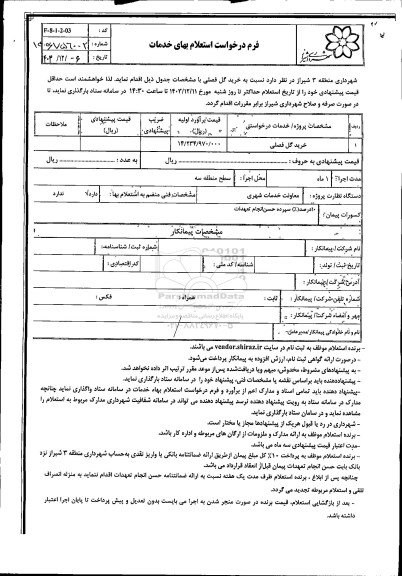 فرم درخواست استعلام بهای خدمات
کد : F-8-1-2-03
شماره :
تاریخ :
شهرداری منطقه ۳ شیراز در نظر دارد نسبت به خرید گل فصلی با مشخصات جدول ذیل اقدام نماید. لذا خواهشمند است حداقل
قیمت پیشنهادی خود را از تاریخ استعلام حداکثر تا روز شنبه مورخ ۱۴۰۳/۱۲/۱۱ تا ساعت ۱۴:۳۰ در سامانه ستاد بارگذاری نماید، تا
در صورت صرفه و صلاح شهرداری شیراز برابر مقررات اقدام گردد.
ردیف مشخصات پروژه/ خدمات درخواستی قیمت برآورد اولیه (ریال) ضریب پیشنهادی قیمت پیشنهادی (ریال) ملاحظات
۱ خرید گل فصلی ۱۴/۲۳۴/۹۷۰/۰۰۰
قیمت پیشنهادی به حروف : ریال به عدد : ریال
مدت اجرا: ۱ ماه محل اجرا: سطح منطقه سه
دستگاه نظارت پروژه : معاونت خدمات شهری مشخصات فنی منضم به استعلام بها : دارد ندارد
کسورات پیمان : ۱۰درصد(٪) سپرده حسن انجام تعهدات
مشخصات پیمانکار
نام شرکت/پیمانکار : شماره ثبت/ شناسنامه:
تاریخ ثبت/ تولد: شناسه/ کد ملی : کد اقتصادی:
آدرس شرکت/پیمانکار:
شماره تلفن شرکت/ پیمانکار : ثابت : همراه : فکس :
مهر و امضاء شرکت/ پیمانکار :
نام و نام خانوادگی پیمانکار/مدیرعامل:
- برنده استعلام موظف به ثبت نام در سایت vendor.shiraz.ir می باشند.
- درصورت ارائه گواهی ثبت نام، ارزش افزوده به پیمانکار پرداخت می‌شود.
- به پیشنهادهای مشروط، مخدوش، مبهم ویا دریافت‌شده پس‌از موعد مقرر ترتیب اثر داده نخواهد شد.
- پیشنهاددهنده باید براساس نقشه یا مشخصات فنی، پیشنهاد خود را در سامانه ستاد بارگذاری نماید.
-پیشنهاد دهنده باید تمامی اسناد و مدارک اعم از برآورد و فرم درخواست استعلام بهاء خدمات در سامانه ستاد واگذاری نماید چنانچه
مدارک در سامانه ستاد به رویت پیشنهاد دهنده نرسد پیشنهاد دهنده می تواند در سامانه شفافیت شهرداری مدارک مربوط به استعلام را
مشاهده نماید و در سامان ستاد بارگذاری نماید.
- شهرداری در رد یا قبول هریک از پیشنهادها مجاز یا مختار است.
- برنده استعلام موظف به ارائه مدارک و ملزومات از ارگان های مربوطه و اداره کار باشد.
-مدت اعتبار قیمت پیشنهادی سه ماه می باشد.
- برنده استعلام موظف به پرداخت ۱۰٪ کل مبلغ پیمان ازطریق ارائه ضمانتنامه بانکی یا واریز نقدی به‌حساب شهرداری منطقه ۳ شیراز نزد
بانک بابت حسن انجام تعهدات پیمان قبل‌از انعقاد قرارداد می باشد.
چنانچه پس از ابلاغ ، برنده استعلام ظرف مدت یک هفته نسبت به ارائه ضمانتنامه حسن انجام تعهدات اقدام ننماید به منزله انصراف
تلقی و استعلام مربوطه تجدید می گردد.
- بعد از بازگشایی استعلام، قیمت برنده در صورت منجر شدن به اجرا می بایست بدون تعدیل و پیش پرداخت تا پایان اجرا اعتبار
داشته باشد.